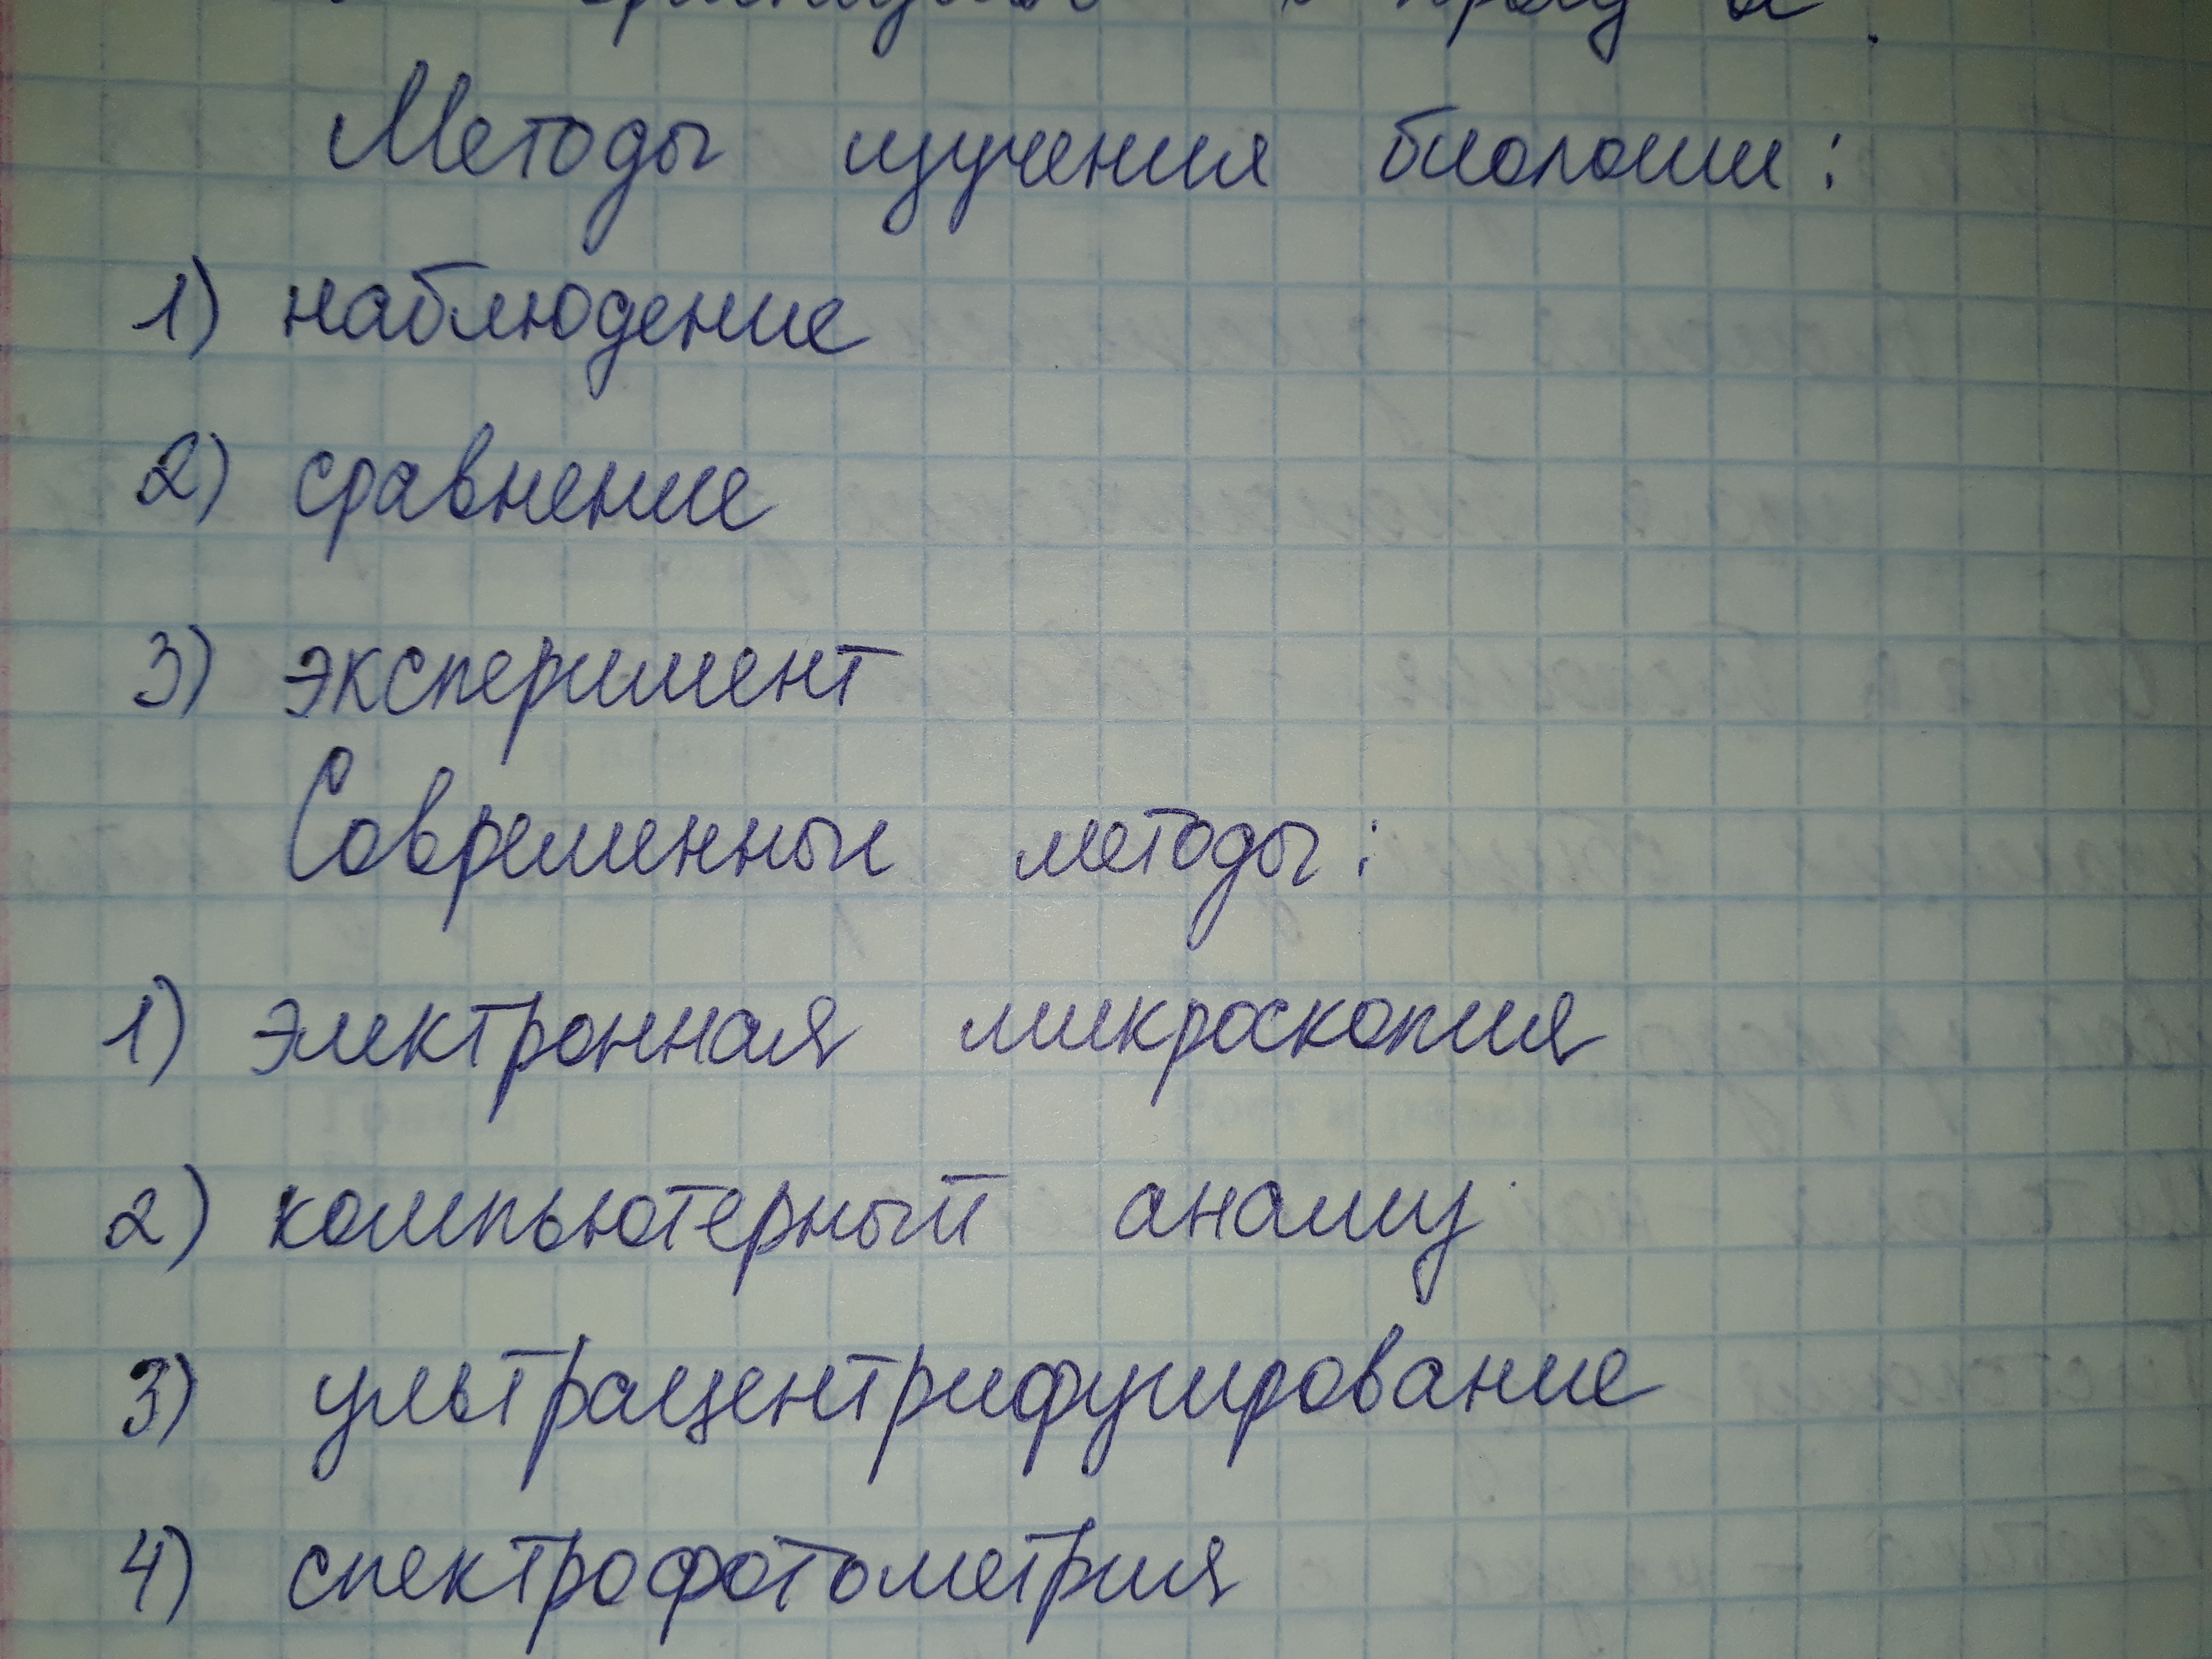 Методы изучения биологии:
1) наблюдение
2) сравнение
3) эксперимент
Современные методы:
1) электронная микроскопия
2) компьютерный анализ
3) ультрацентрифугирование
4) спектрофотометрия